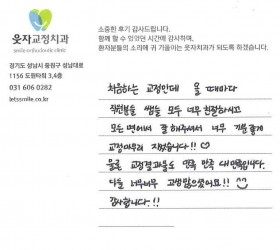 웃자교정치과
경기도 성남시 중원구 성남대로
1156 도원타워 3,4층
031 606 0282
letssmile.co.kr
소중한 후기 감사드립니다.
함께 할 수 있었던 시간에 감사하며,
환자분들의 소리에 귀 기울이는 웃자치과가 되도록 하겠습니다.
처음하는 교정인데 올 때마다
직원분들 쌤들 모두 너무 친절하시고
모든 면에서 잘 해주셔서 너무 기분좋게
교정마무리 지었습니다!!
물론 교정결과물도 만족 만족 대만족입니다.
다들 너무너무 고생많으셨어요!!
감사합니다.!!